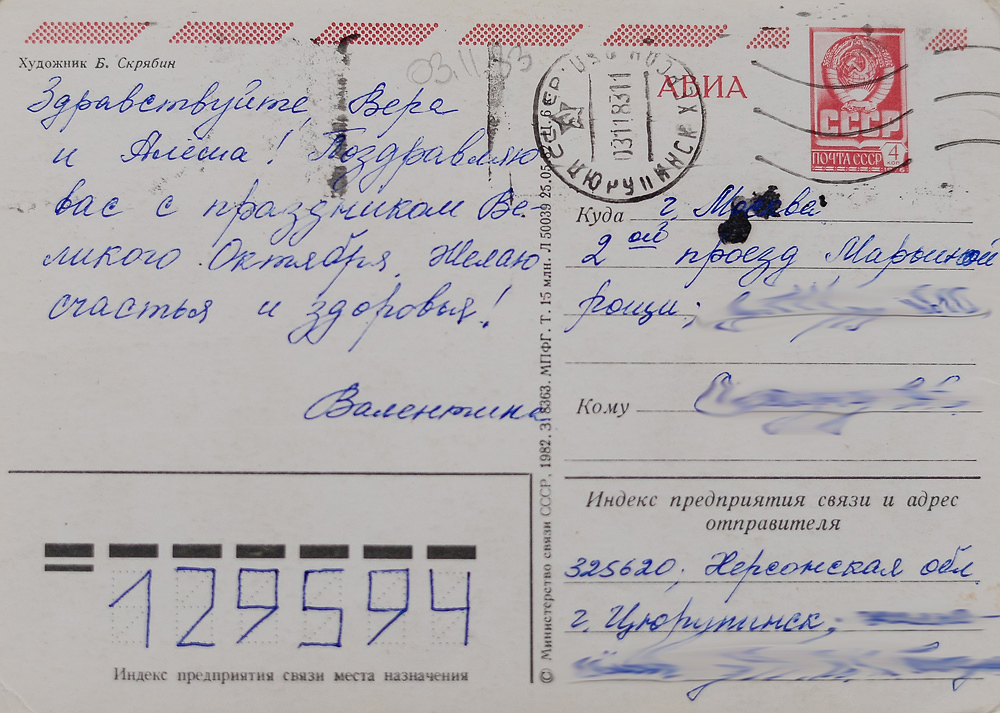 Художник Б. Скрябин
03.11.83
Здравствуйте, Вера
и Алёша! Поздравляю
вас с праздником Ве-
ликого Октября. Желаю
счастья и здоровья!
Валентина
129594
Индекс предприятия связи места назначения
© Министерство связи СССР, 1982. З. 8363. МПФГ. Т. 15 млн. Л 50039 25.05.
ЦЮРУПИНСК ХЕР
031183
АВИА
СССР
ПОЧТА СССР
4
КОП
1976
Куда г. Москва
2ой проезд Марьиной
рощи;
Кому
Индекс предприятия связи и адрес
отправителя
325620, Херсонская обл.
г. Цюрупинск,